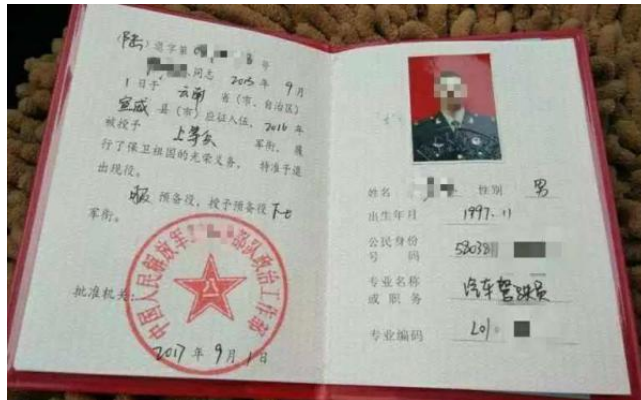 (陆)退字第 号
同志 2015 年 9 月
1 日于 云南 省(市、自治区)
宣威 县(市)应征入伍,2016 年
被授予 上等兵 军衔,履
行了保卫祖国的光荣义务,特准予退
出现役。
服 预备役,授予预备役 下士
军衔。
批准机关:
中国人民解放军 部队政治工作部
2017 年 9 月 1 日
姓名 性别 男
出生年月 1997.11
公民身份
号 码
专业名称 汽车驾驶员
或 职 务
专业编码